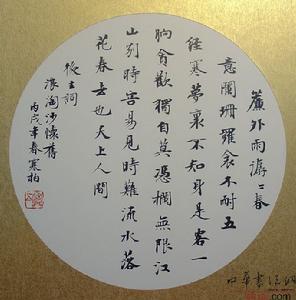 簾外雨潺〻春
意闌珊羅衾不耐五
更寒夢裏不知身是客一
晌貪歡獨自莫憑欄無限江
山别時容易見時難流水落
花春去也天上人間
後主詞
浪淘沙懷舊
丙戌年春寒柏
中华书法网